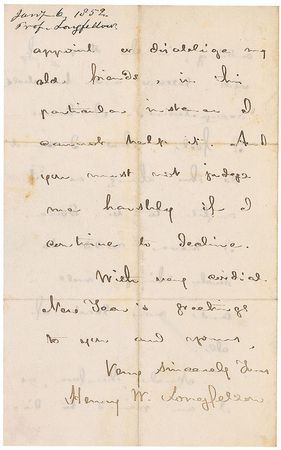 Jany 6, 1852.
Prof. Longfellow.
appoint or disoblige my
old friends, in this
particular instance I
cannot help it. And
you must not judge
me harshly if I
continue to decline.
With very cordial
New Year's greetings
to you and yours,
Very sincerely Yours
Henry W. Longfellow